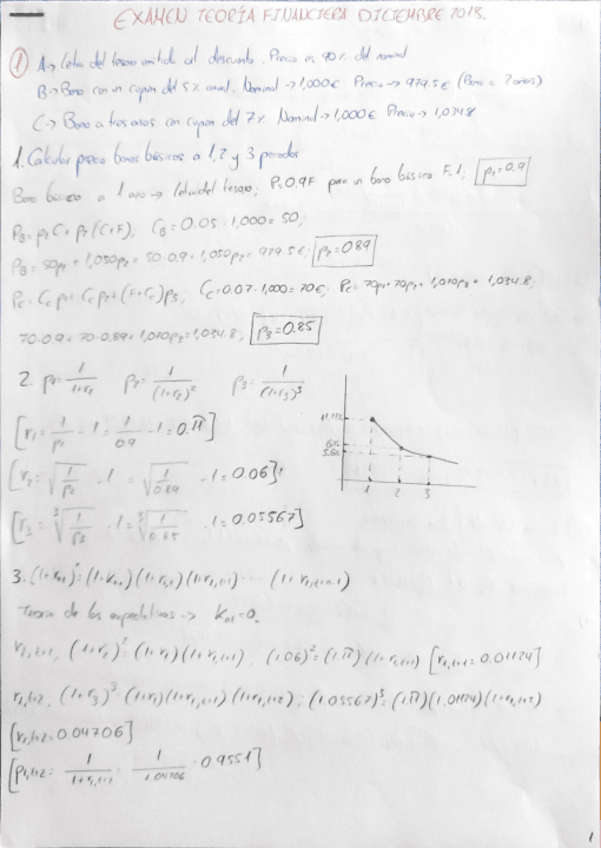 EXAMEN TEORÍA FINANCIERA DICIEMBRE 2018.
① A→ Letra del tesoro emitida al descuento. Precio es 90% del nominal
B→ Bono con un cupon del 5% anual. Nominal → 1,000€ Precio → 979.5€ (Bono a 2 años)
C→ Bono a tres años con cupon del 7% Nominal → 1,000€ Precio → 1,034.8
1. Calcular precio bonos básicos a 1, 2 y 3 periodos
Bono básico a 1 año → letra del tesoro; P=0.9F para un bono básico F=1; p₁=0.9
P_B = p₁C + p₂(C+F); C_B = 0.05 · 1,000 = 50;
P_B = 50p₁ + 1,050p₂ = 50·0.9 + 1,050p₂ = 979.5€; p₂=0.89
P_C = C_C p₁ + C_C p₂ + (F+C_C)p₃; C_C = 0.07·1,000 = 70€; P_C = 70p₁ + 70p₂ + 1,070p₃ = 1,034.8;
70·0.9 + 70·0.89 + 1,070p₃ = 1,034.8; p₃=0.85
2. p₁ = 1/(1+r₁) p₂ = 1/(1+r₂)² p₃ = 1/(1+r₃)³
[r₁ = 1/p₁ - 1 = 1/0.9 - 1 = 0.11]
[r₂ = √(1/p₂) - 1 = √(1/0.89) - 1 = 0.06];
[r₃ = ³√(1/p₂) - 1 = ³√(1/0.85) - 1 = 0.05567]
11.11%
6%
5.56%
1 2 3
Teoria de las expectativas → K_nt = 0.
r₁,t+1; (1+r₂)² = (1+r₁)(1+r₁,t+1); (1.06)² = (1.11)(1+r₁,t+1) [r₁,t+1 = 0.01124]
r₁,t+2; (1+r₃)³ = (1+r₁)(1+r₁,t+1)(1+r₁,t+2); (1.05567)³ = (1.11)(1.01124)(1+r₁,t+2)
[r₁,t+2 = 0.04706]
[p₁,t+2 = 1/(1+r₁,t+2) = 1/1.04706 = 0.9551]
1